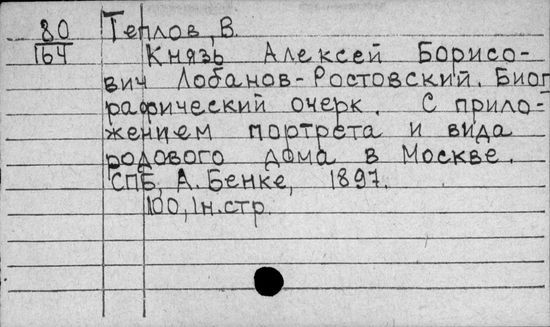 80 Теплов, В.
164 Князь Алексей Борисо-
вич Лобанов-Ростовский. Биог
рафический очерк. С прило-
жением портрета и вида
родового дома в Москве.
СПБ, А. Бенке, 1897.
100, 1н. стр.